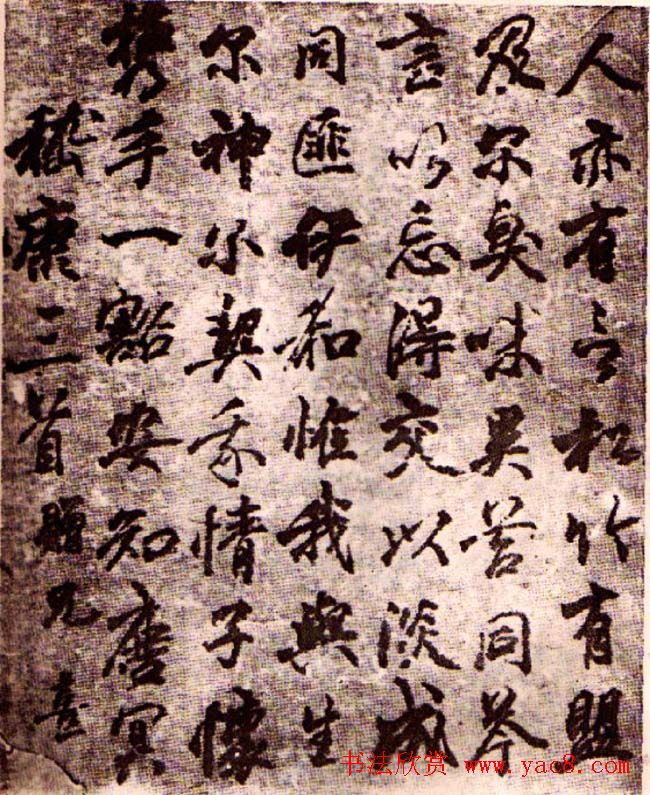 人亦有言松竹有盟
及尔臭味異苔同岑
言以忘得交以淡成
同匪伊和惟我與生
尔神尔契我情子懷
携手一豁安知塵冥
嵇康三首贈兄喜
书法欣赏 www.yac8.com